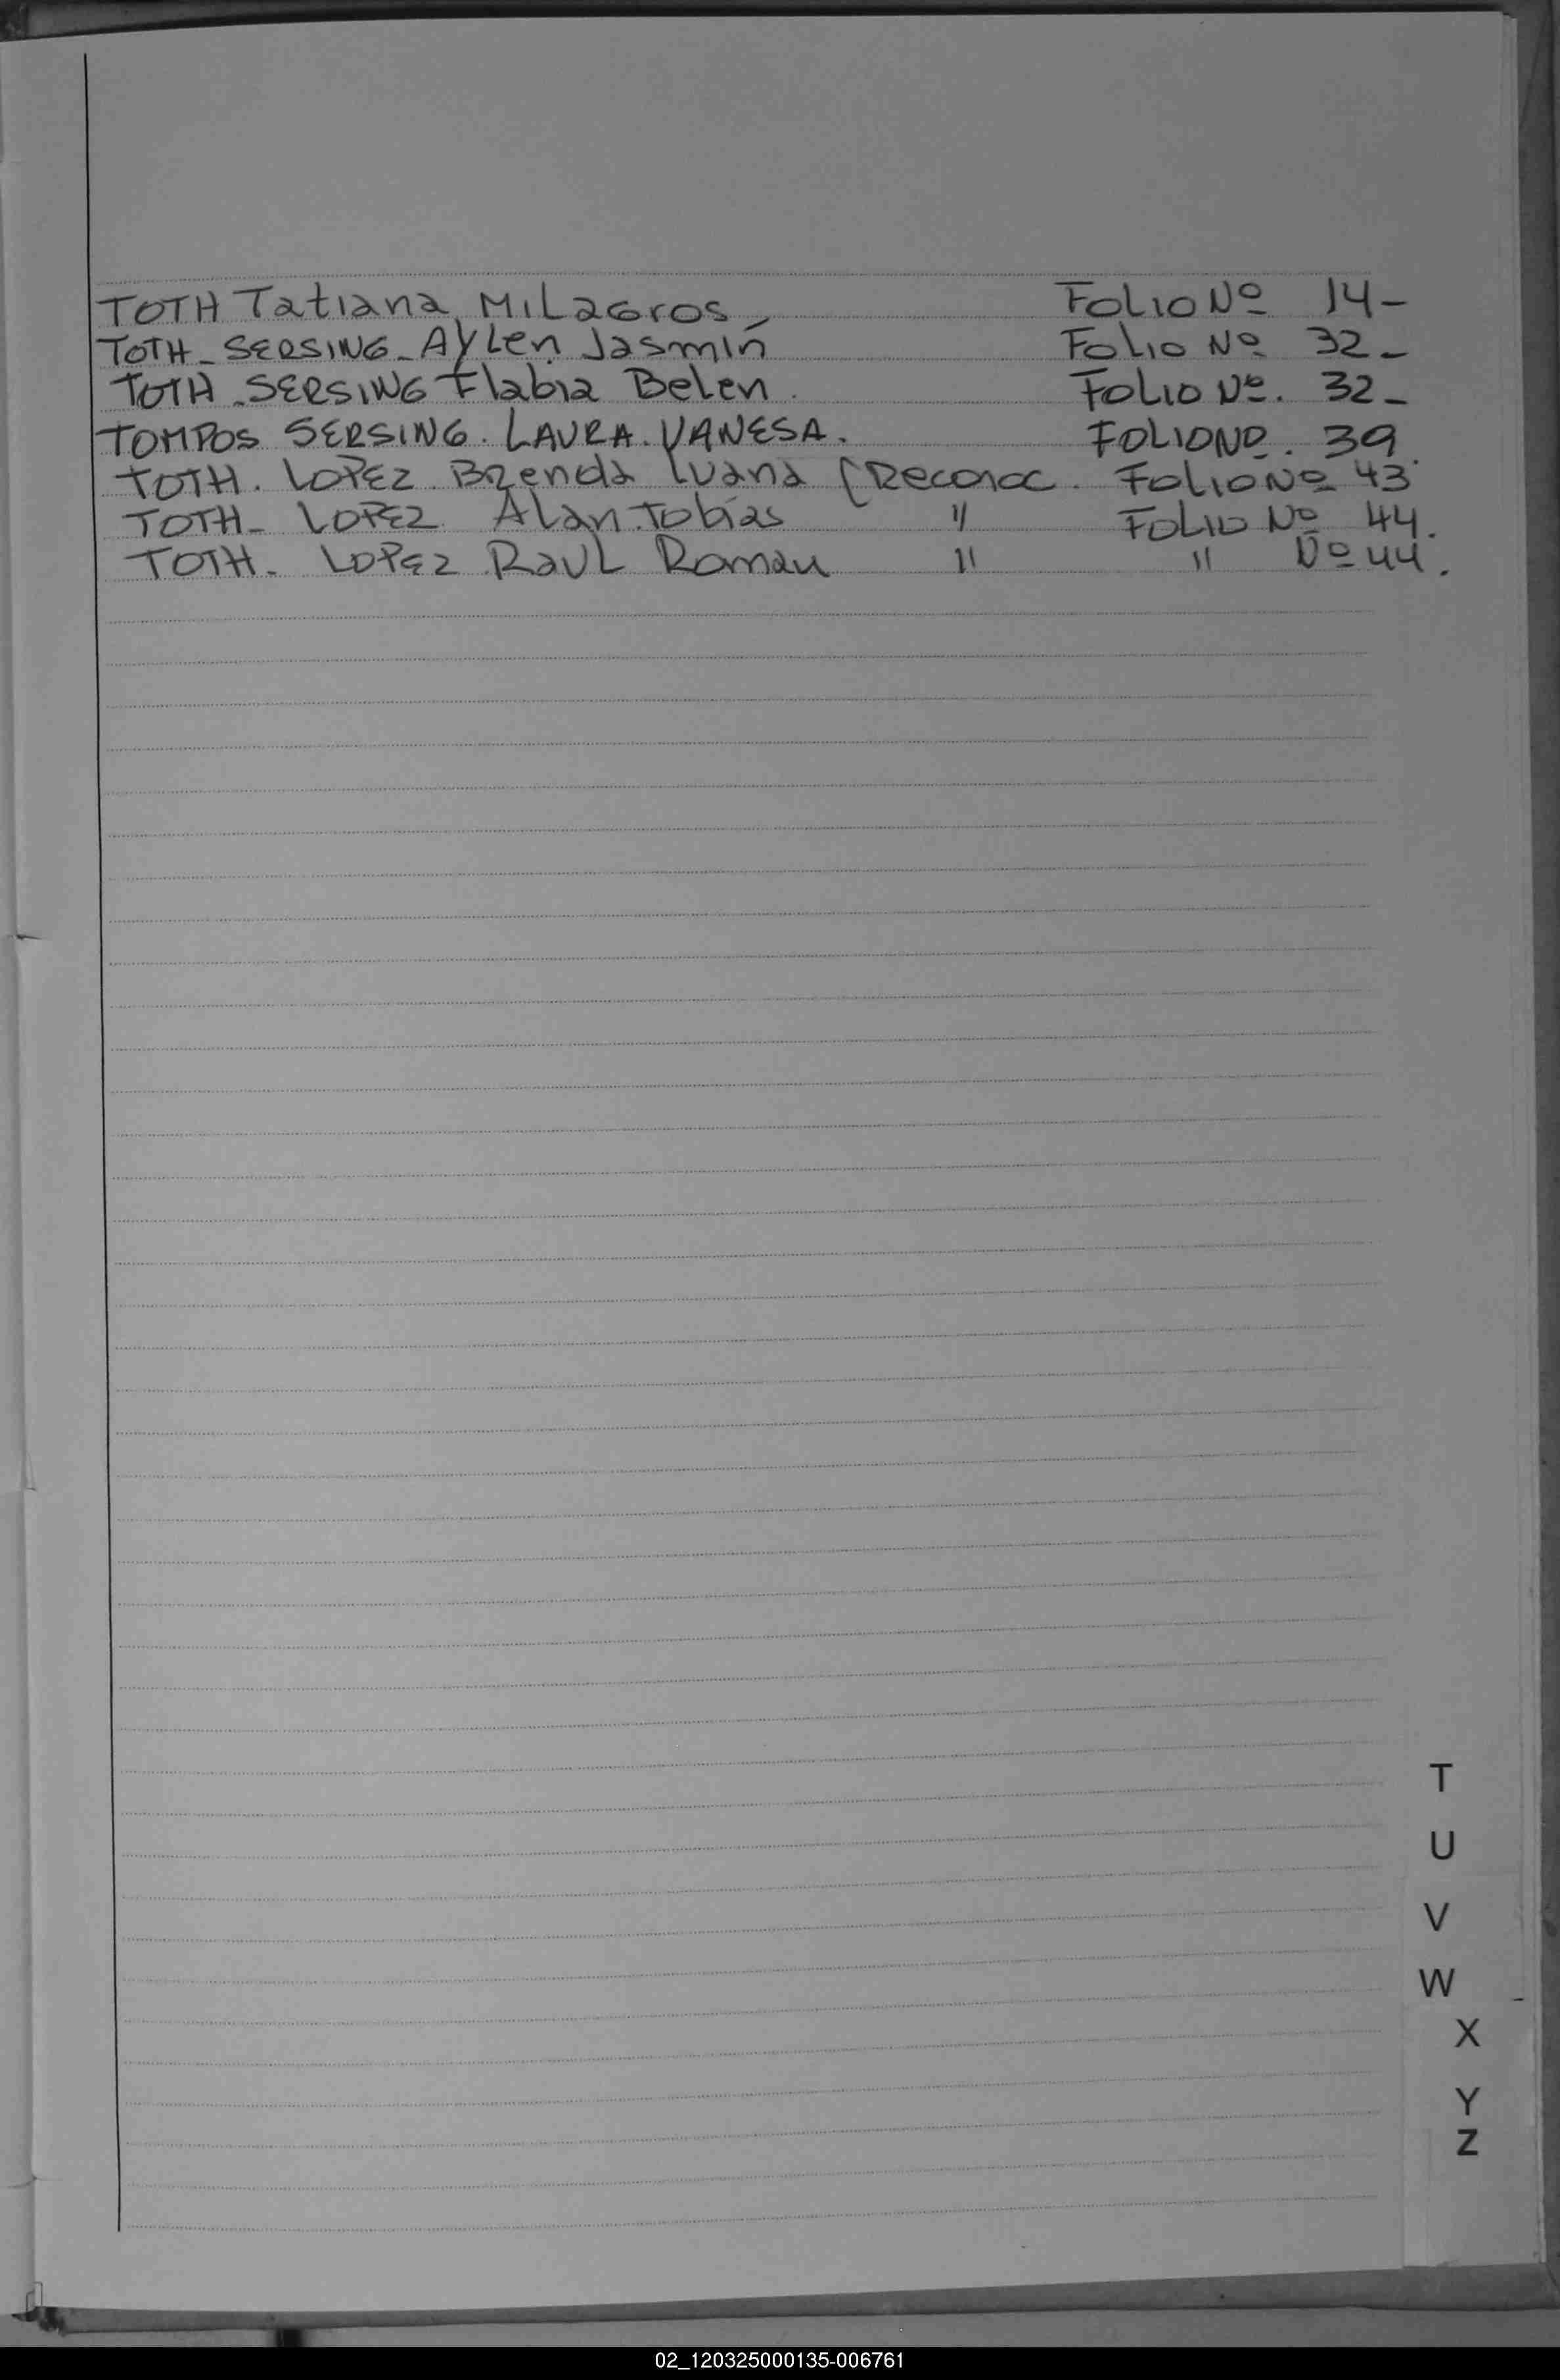 TOTH Tatiana Milagros - Folio Nº 14-
TOTH - SERSING - Aylen Jasmín Folio Nº 32-
TOTH - SERSING Flabia Belen. Folio Nº. 32-
TOMPOS SERSING. LAURA. VANESA. FOLIO Nº. 39
TOTH. LOPEZ. Brenda Luana (Reconoc. Folio Nº 43
TOTH - LOPEZ Alan Tobías " Folio Nº 44.
TOTH - LOPEZ Raul Roman " " Nº 44.
T
U
V
W
X
Y
Z
02_120325000135-006761